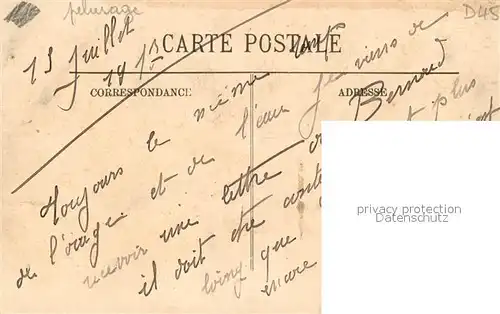 pelurage
D45
13 Juillet
1915
CARTE POSTALE
CORRESPONDANCE
ADRESSE
Toujours le même
de l'orage et de l'eau Je viens de
recevoir une lettre de Bernard
il doit être plus
loin que
encore
privacy protection
Datenschutz